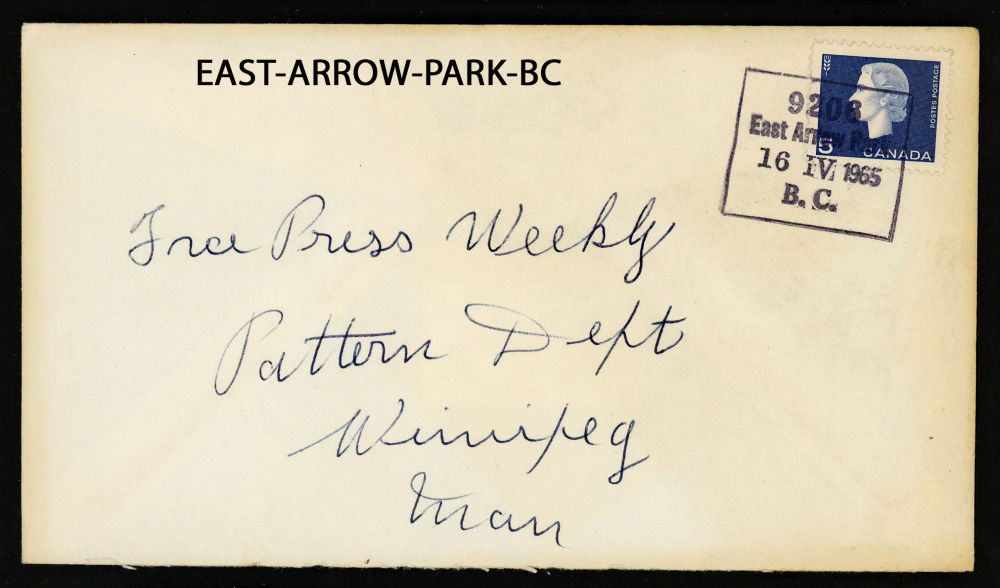 EAST-ARROW-PARK-BC
9206
East Arrow Park
16 IV 1965
B.C.
5
CANADA
POSTES POSTAGE
Free Press Weekly
Pattern Dept
Winnipeg
Man